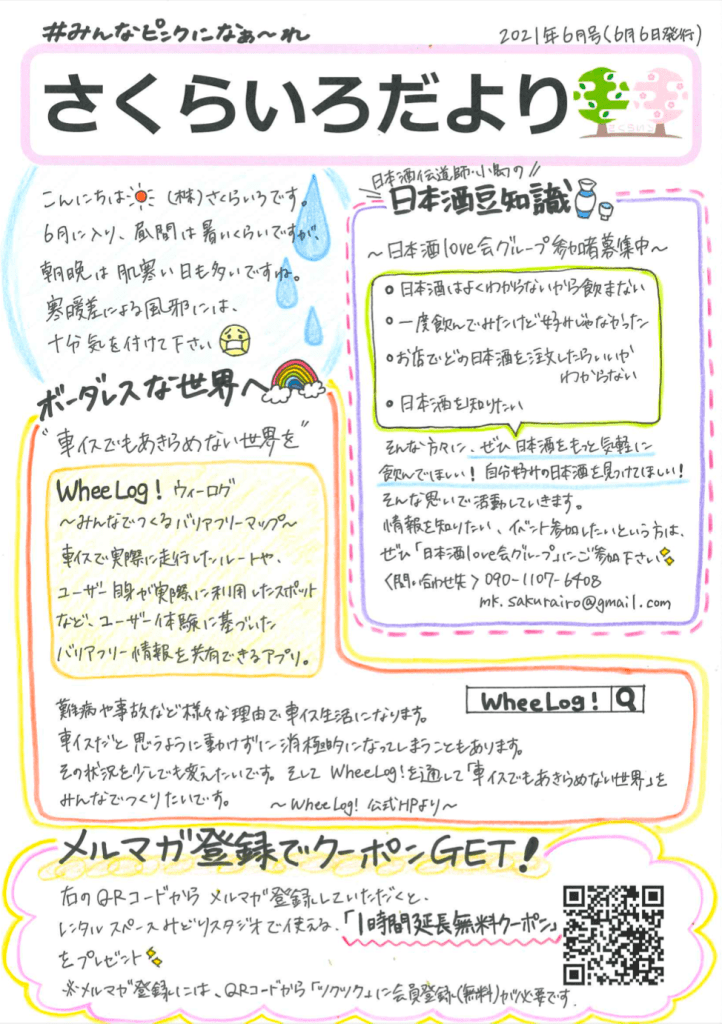 #みんなピンクになぁ〜れ
2021年6月号(6月6日発行)
さくらいろだより
さくらいろ
こんにちは (株)さくらいろです。
6月に入り、昼間は暑いくらいですが、
朝晩は肌寒い日も多いですね。
寒暖差による風邪には、
十分気を付けて下さい
日本酒伝道師・小町の
日本酒豆知識
〜日本酒love会グループ参加者募集中〜
日本酒はよくわからないから飲まない
一度飲んでみたけど好みじゃなかった
お店でどの日本酒を注文したらいいか
わからない
日本酒を知りたい
そんな方々に、ぜひ日本酒をもっと気軽に
飲んでほしい！自分好みの日本酒を見つけてほしい！
そんな思いで活動していきます。
情報を知りたい、イベント参加したいという方は、
ぜひ「日本酒love会グループ」にご参加下さい
〈問い合わせ先〉090-1107-6408
mk.sakurairo@gmail.com
ボーダレスな世界へ
"車イスでもあきらめない世界を"
WheeLog! ウィーログ
〜みんなでつくるバリアフリーマップ〜
車イスで実際に走行したルートや、
ユーザー自身が実際に利用したスポット
など、ユーザー体験に基づいた
バリアフリー情報を共有できるアプリ。
WheeLog!
難病や事故など様々な理由で車イス生活になります。
車イスだと思うように動けずに消極的になってしまうこともあります。
その状況を少しでも変えたいです。そしてWheeLog!を通して「車イスでもあきらめない世界」を
みんなでつくりたいです。 〜WheeLog! 公式HPより〜
メルマガ登録でクーポンGET!
右のQRコードからメルマガ登録していただくと、
レンタルスペースみどりスタジオで使える、「1時間延長無料クーポン」
をプレゼント
※メルマガ登録には、QRコードから「ツクツク」に会員登録(無料)が必要です。